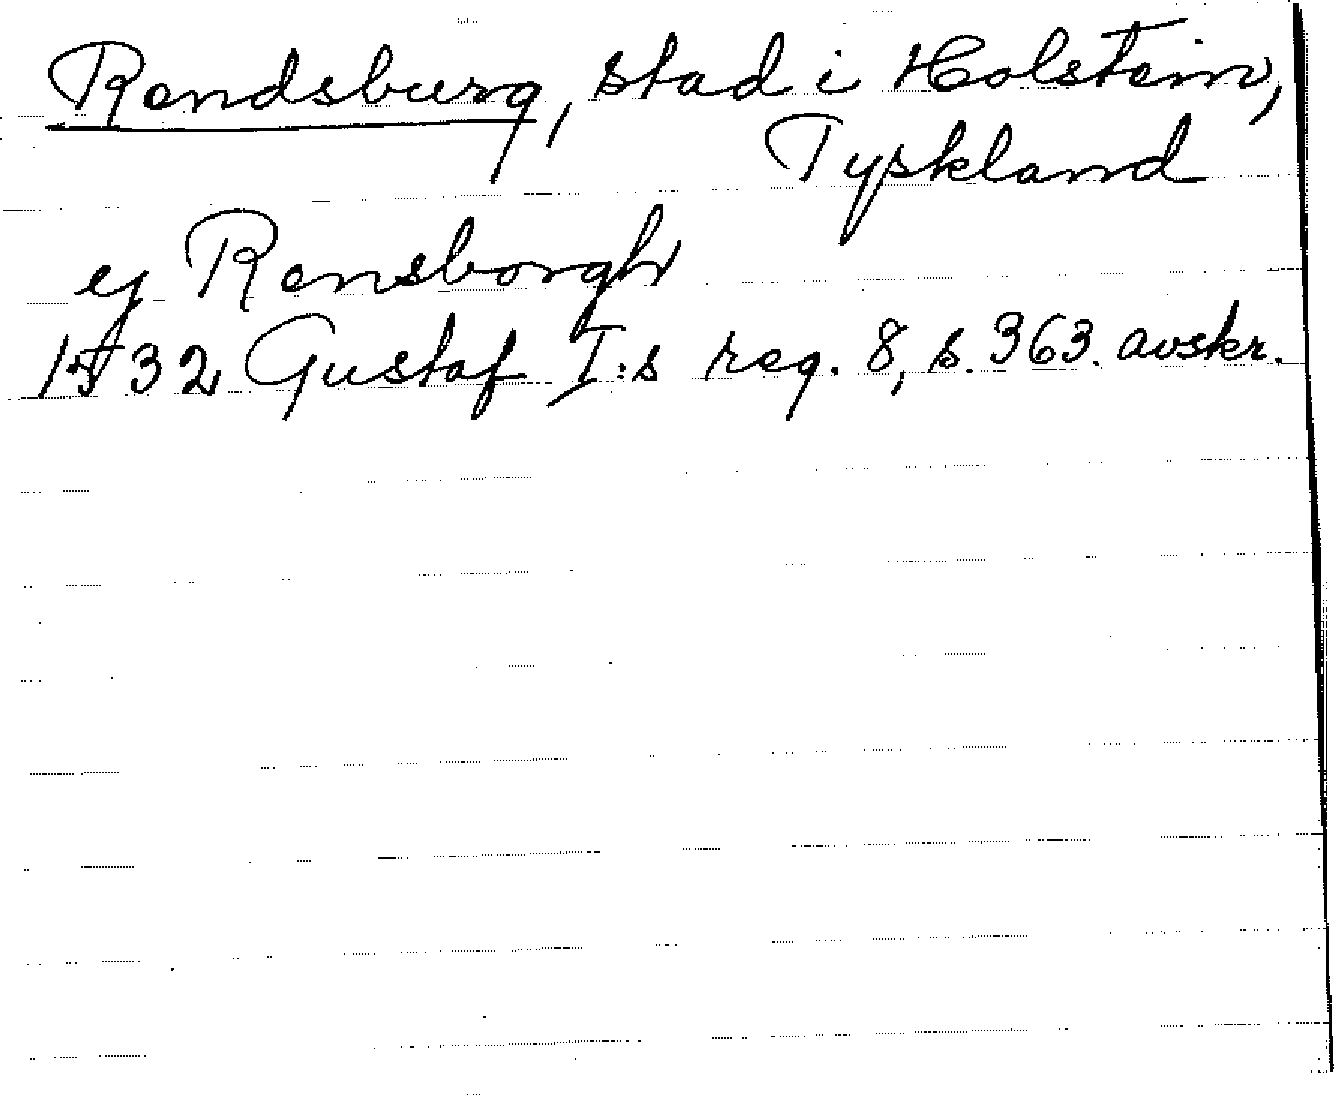 Rendsburg, stad i Holstein,
Tyskland
ej Rensborgh
1532 Gustaf I:s reg. 8, s. 363. avskr.